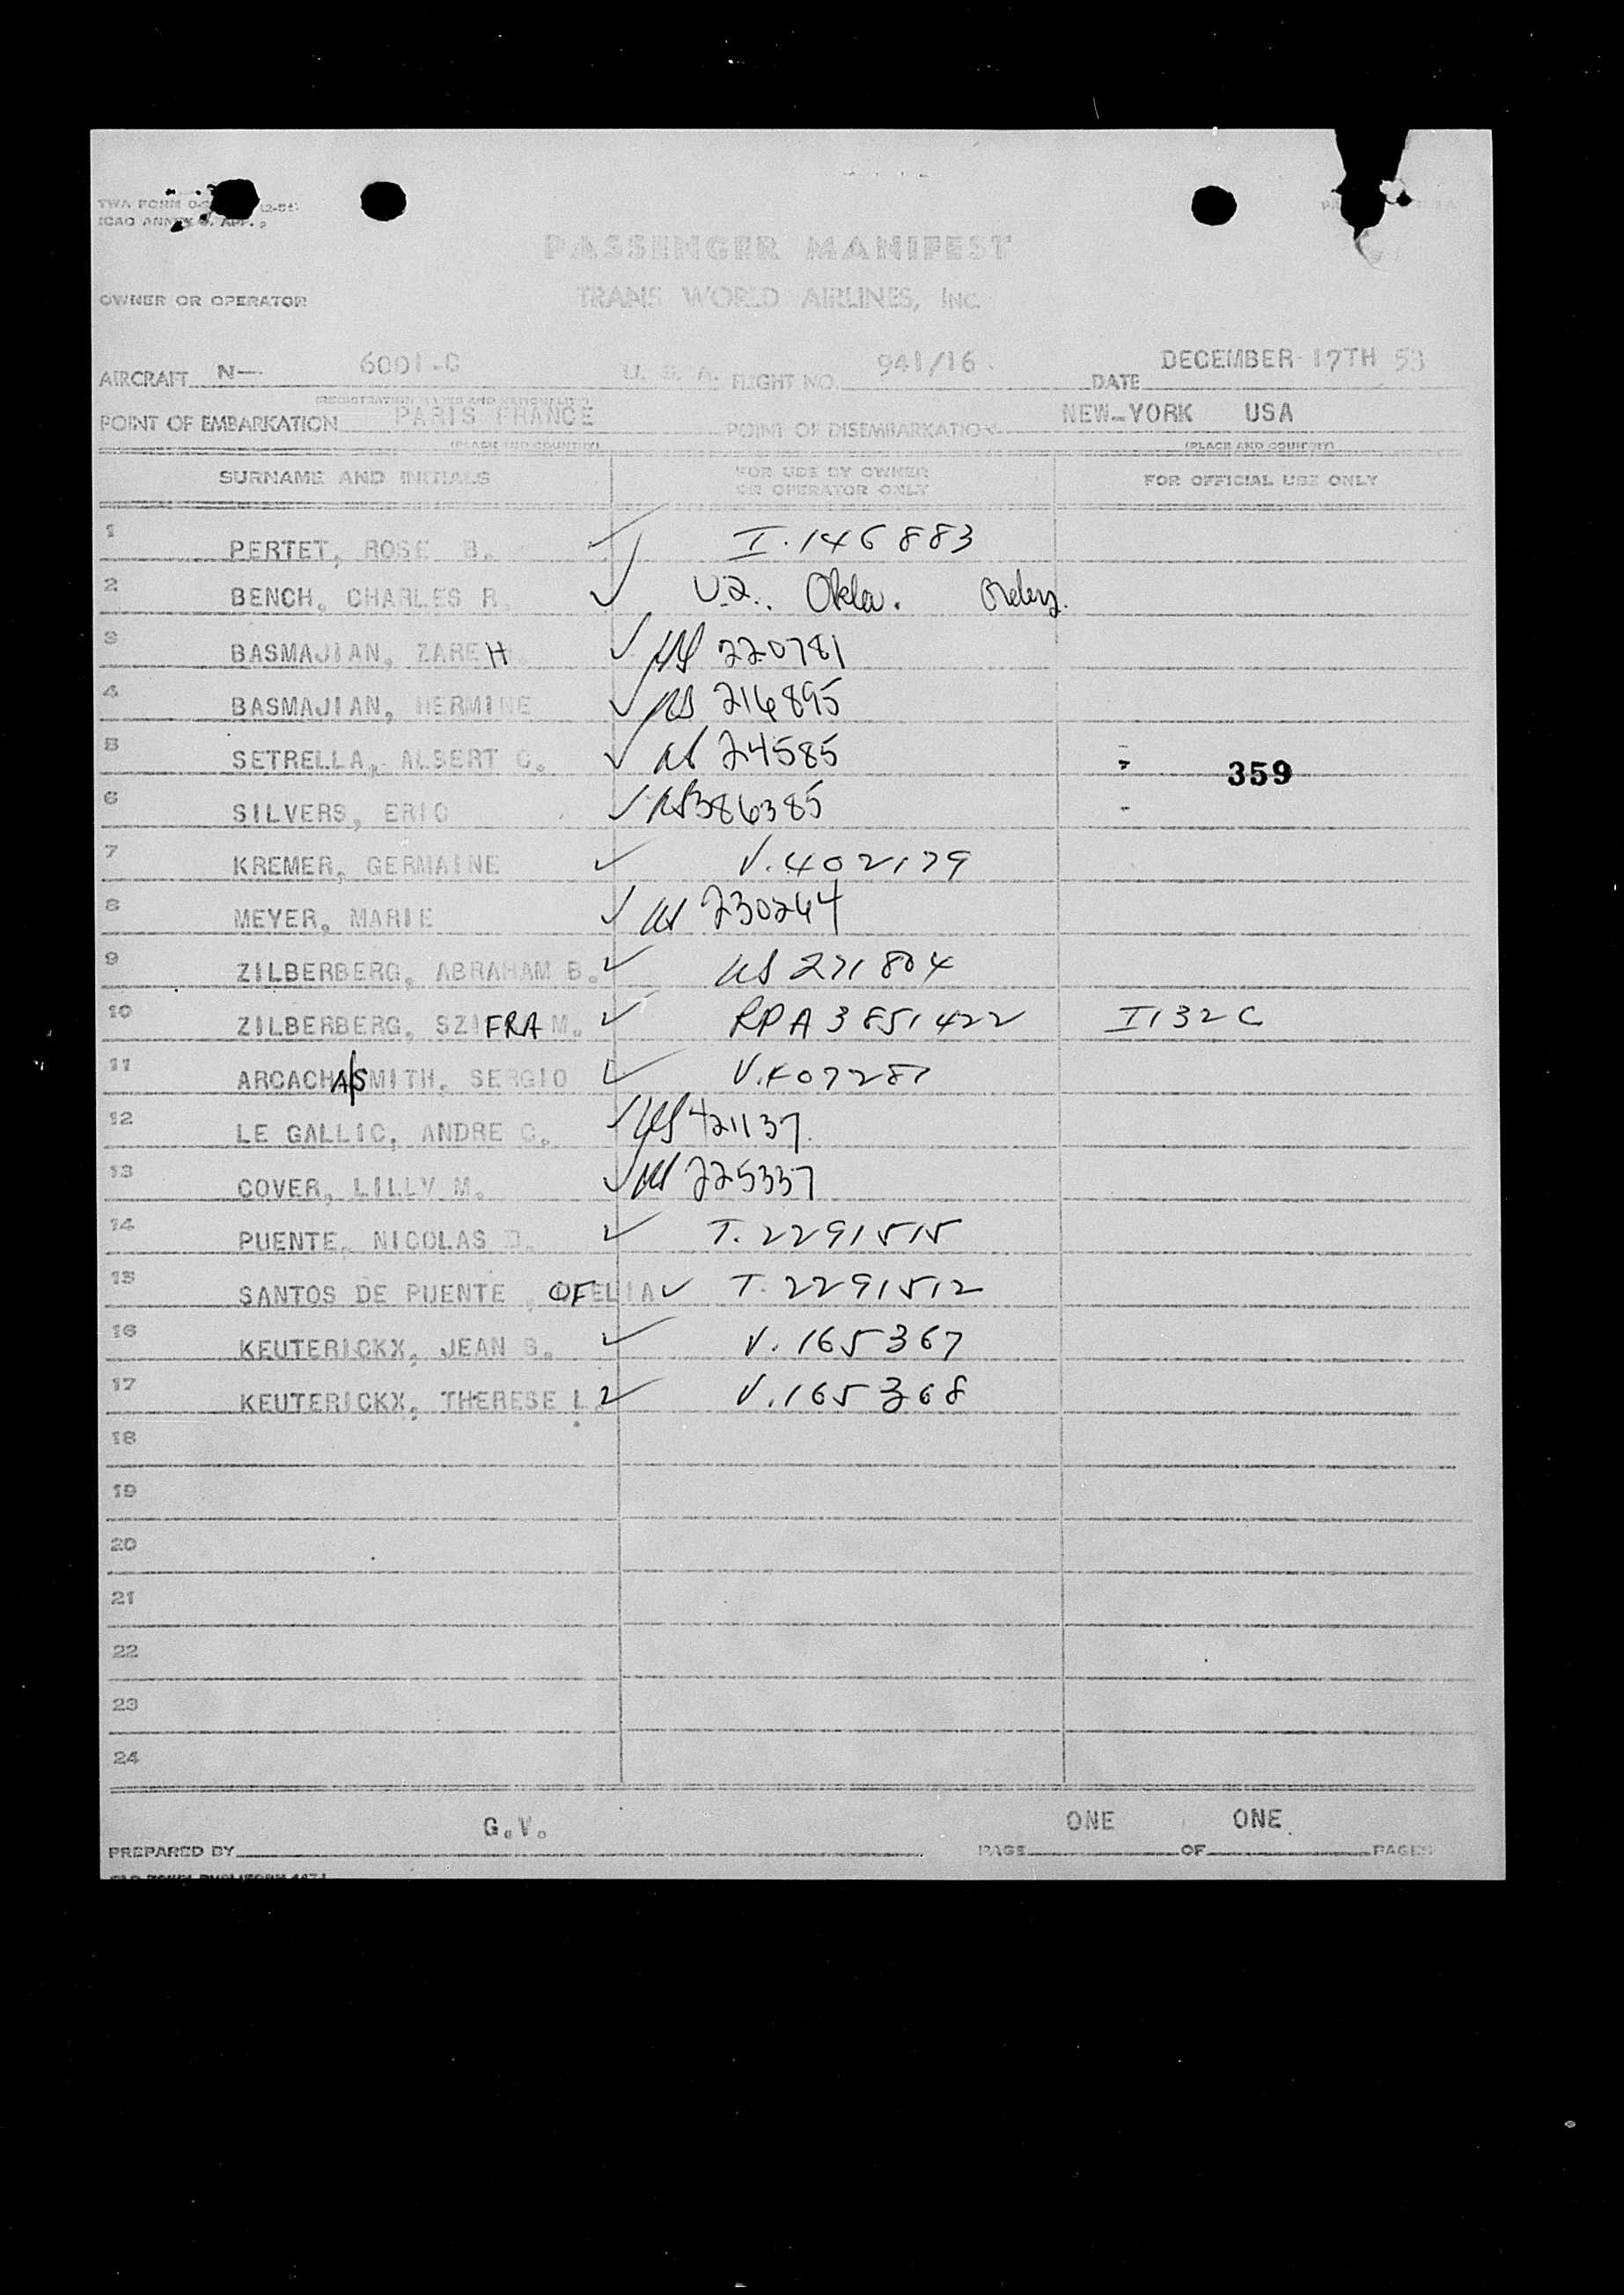 TWA FORM
ICAO ANNEX 9, APP.
PASSENGER MANIFEST
OWNER OR OPERATOR TRANS WORLD AIRLINES, INC.
AIRCRAFT N— 6001-C U. S. A. FLIGHT NO. 941/16. DATE DECEMBER 17TH 53
(REGISTRATION MARKS AND NATIONALITY)
POINT OF EMBARKATION PARIS FRANCE POINT OF DISEMBARKATION NEW-YORK USA
(PLACE AND COUNTRY) (PLACE AND COUNTRY)
SURNAME AND INITIALS FOR USE BY OWNER OR OPERATOR ONLY FOR OFFICIAL USE ONLY
1 PERTET, ROSE B. ✓ I. 146883
2 BENCH, CHARLES R. ✓ Okla. Orders.
3 BASMAJIAN, ZAREH ✓ US 220781
4 BASMAJIAN, HERMINE ✓ US 216895
5 SETRELLA, ALBERT C. ✓ US 24585 359
6 SILVERS, ERIC ✓ US 386385
7 KREMER, GERMAINE ✓ V. 402179
8 MEYER, MARIE ✓ US 230264
9 ZILBERBERG, ABRAHAM B. ✓ US 271804
10 ZILBERBERG, SZIFRA M. ✓ RPA 3851422 I132C
11 ARCACHA/SMITH, SERGIO ✓ V. 407287
12 LE GALLIC, ANDRE C. ✓ US 421137
13 COVER, LILLY M. ✓ US 225337
14 PUENTE, NICOLAS D. ✓ T. 2291515
15 SANTOS DE PUENTE , OFELIA ✓ T. 2291512
16 KEUTERICKX, JEAN S. ✓ V. 165367
17 KEUTERICKX, THERESE I. ✓ V. 165368
18
19
20
21
22
23
24
PREPARED BY G.V. PAGE ONE OF ONE PAGES